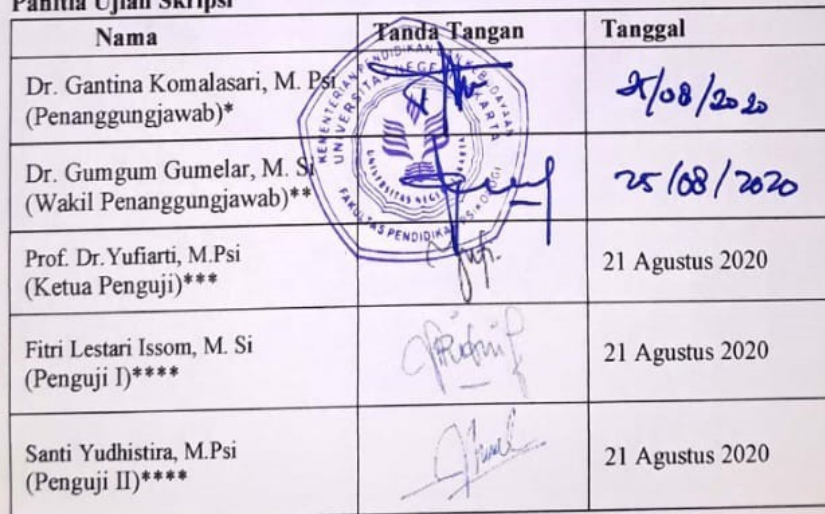 Panitia Ujian Skripsi
Nama Tanda Tangan Tanggal
Dr. Gantina Komalasari, M. Psi
(Penanggungjawab)*
25/08/2020
Dr. Gumgum Gumelar, M. Si
(Wakil Penanggungjawab)**
25/08/2020
Prof. Dr. Yufiarti, M.Psi
(Ketua Penguji)***
21 Agustus 2020
Fitri Lestari Issom, M. Si
(Penguji I)****
21 Agustus 2020
Santi Yudhistira, M.Psi
(Penguji II)****
21 Agustus 2020
KEMENTERIAN PENDIDIKAN DAN KEBUDAYAAN
UNIVERSITAS NEGERI JAKARTA
FAKULTAS PENDIDIKAN PSIKOLOGI